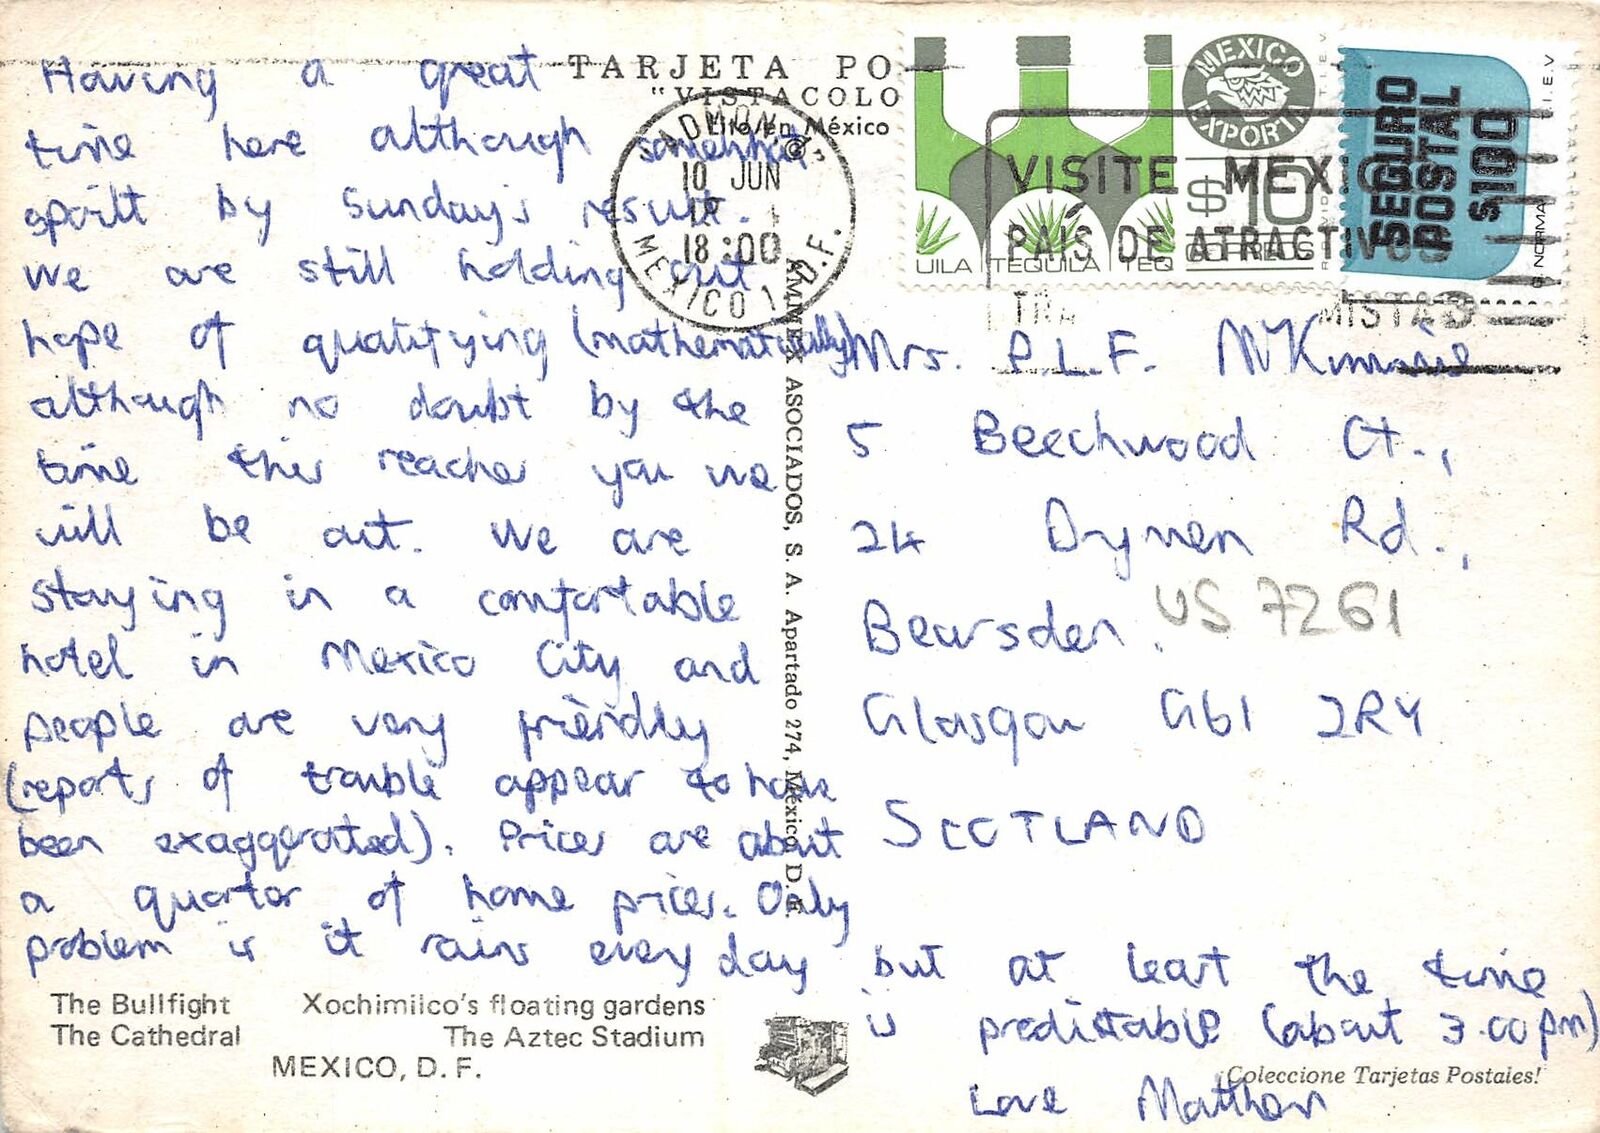 Having a great
time here although somewhat
spoilt by Sunday's result.
We are still holding out
hope of qualifying (mathematically)
although no doubt by the
time this reaches you we
will be out. We are
staying in a comfortable
hotel in Mexico City and
people are very friendly
(reports of trouble appear to have
been exaggerated). Prices are about
a quarter of home prices. Only
problem is it rains every day but at least the time
is predictable (about 3.00pm)
Love Matthew
TARJETA PO
"VISTACOLO
Lito/en México
ADMON
10 JUN
18:00
MEXICO 1 D.F.
AMMEX ASOCIADOS, S. A. Apartado 274, México D. F.
MEXICO
EXPORTA
$10
CORREOS
UILA TEQUILA TEQ
T.I.E.V.
SEGURO
POSTAL
$100
T.I.E.V
NORMA
VISITE MEXICO
PAÍS DE ATRACTIVOS
Mrs. P.L.F. McKimmie
5 Beechwood Ct.,
24 Drymen Rd.,
Bearsden.
US 7261
Glasgow G61 2RY
SCOTLAND
The Bullfight Xochimilco's floating gardens
The Cathedral The Aztec Stadium
MEXICO, D. F.
¡Coleccione Tarjetas Postales!